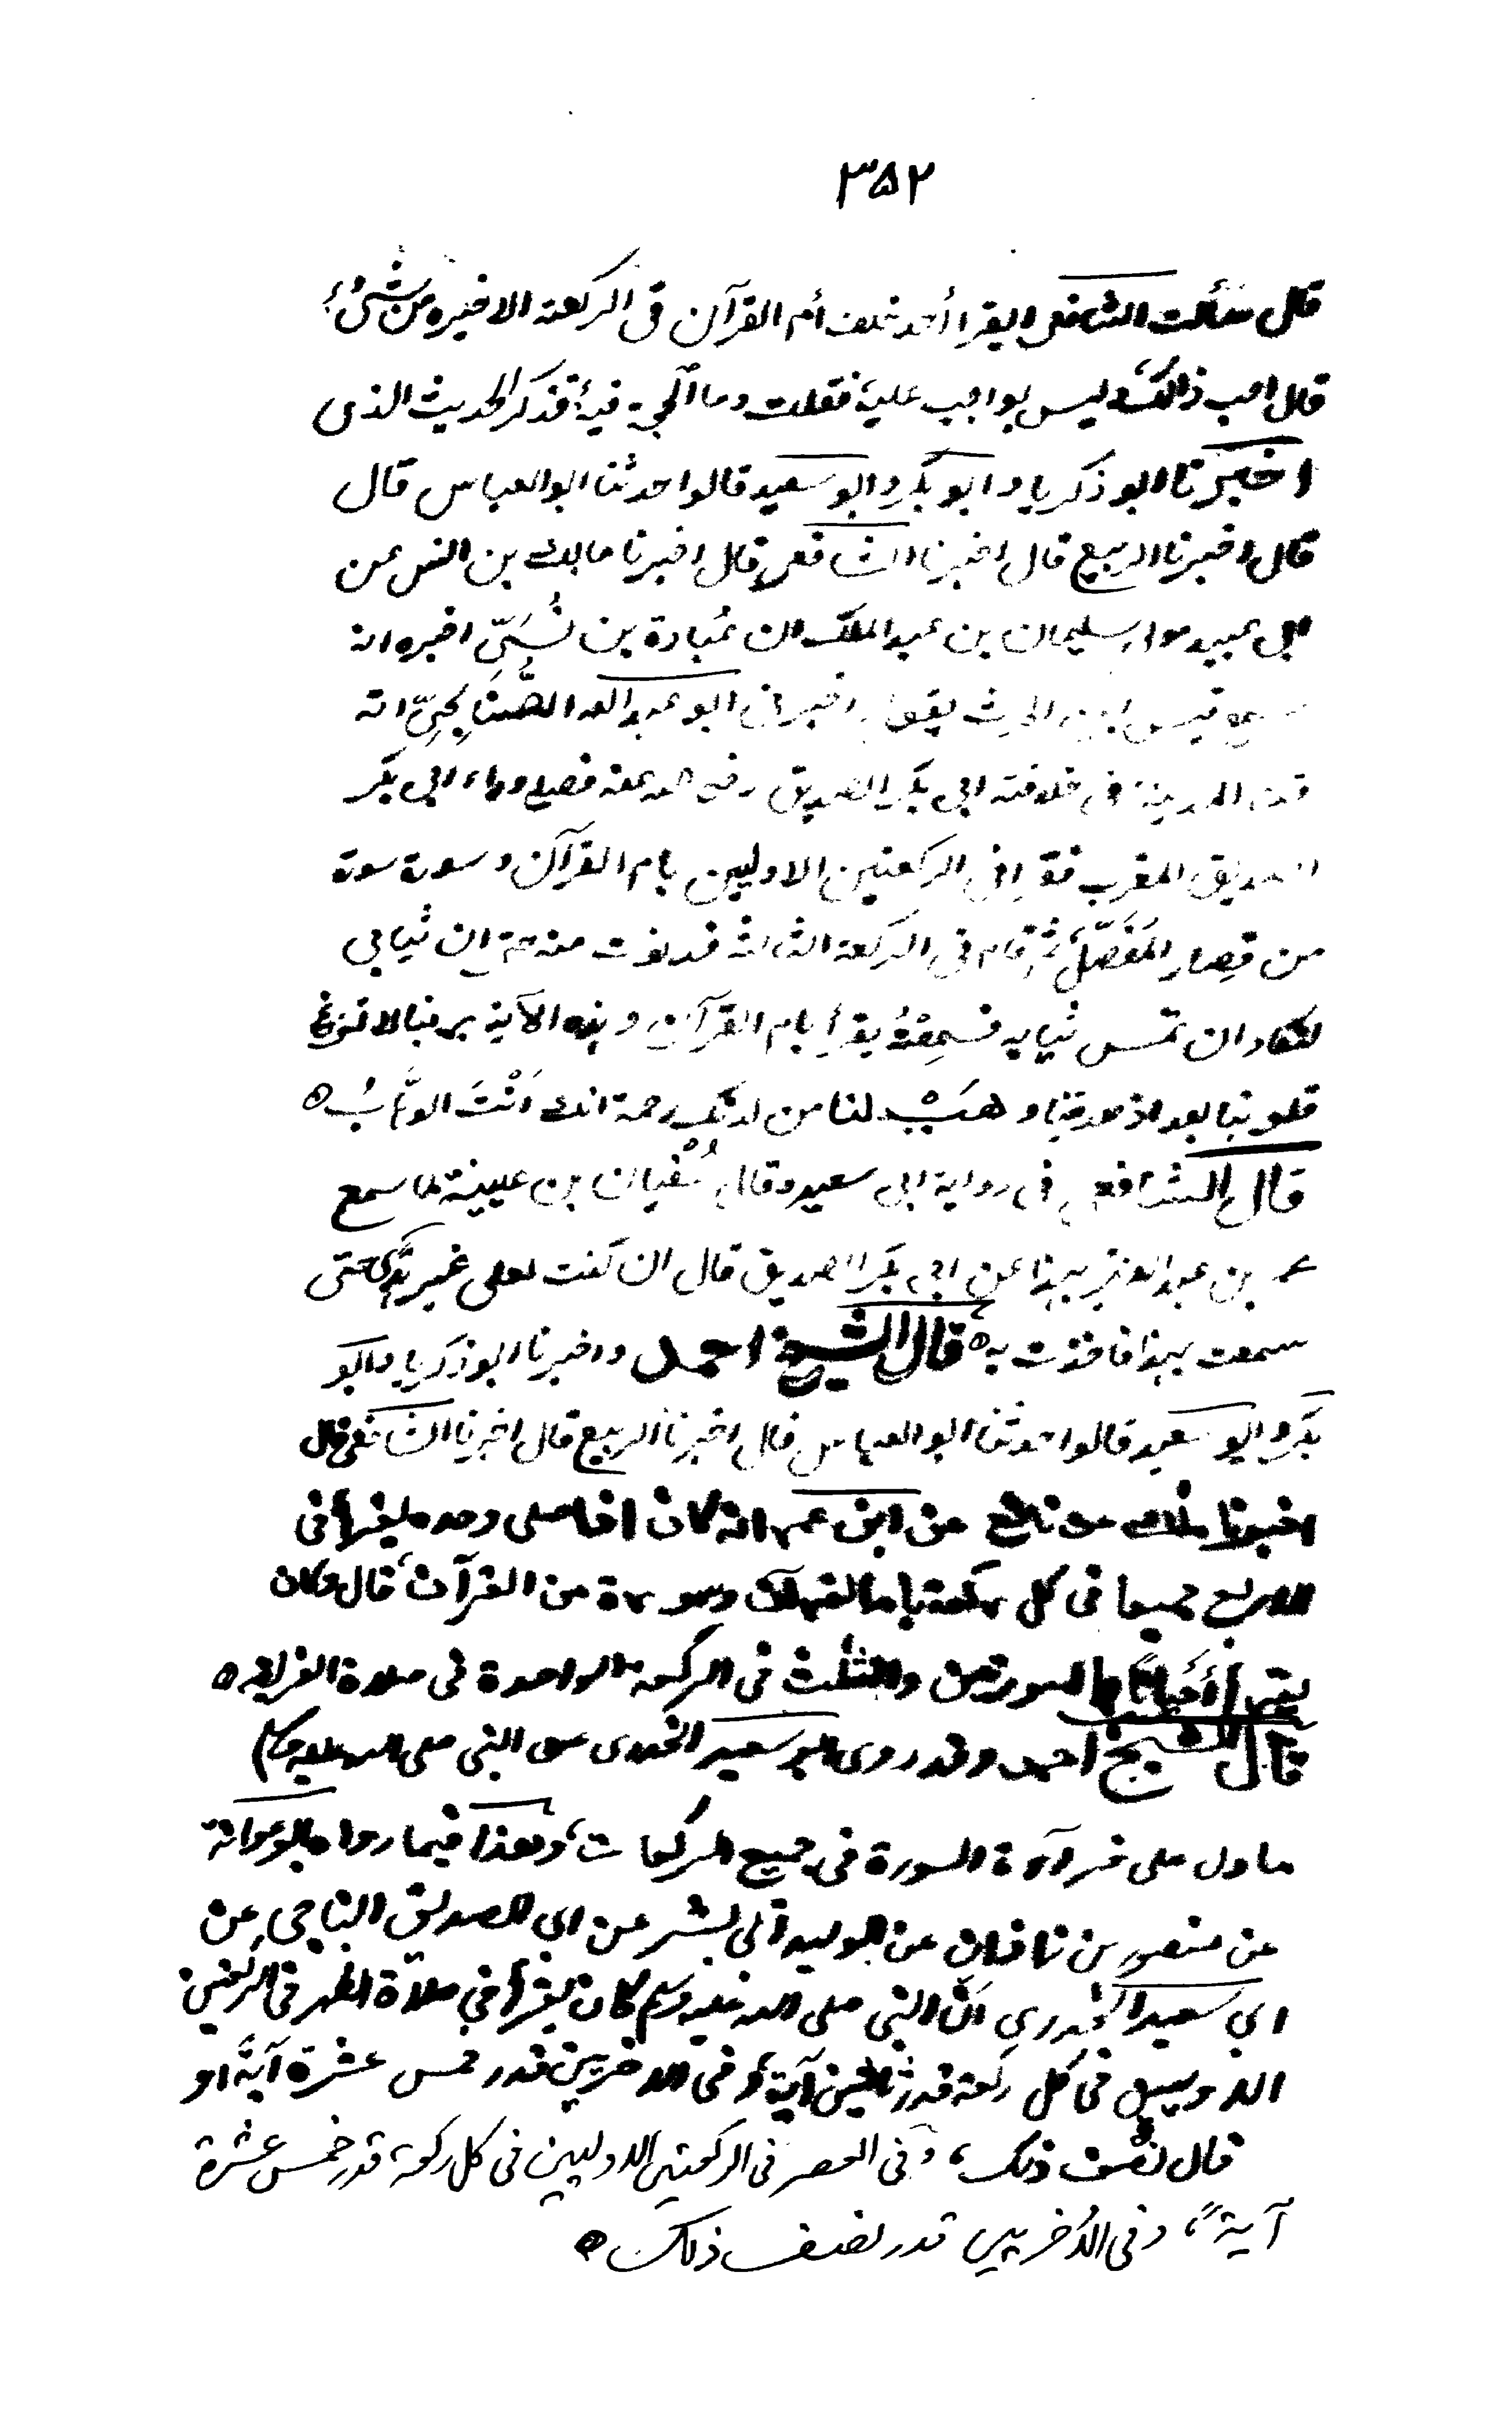 ۳۵۲
قال سألت الشافعي ايقرا أحد خلف أم القرآن في الركعة الاخيره من شيئ؟
قال احب ذالك، وليس بواجب عليه، فقلت وما الحجة فيه؟ فذكر الحديث الذى
اخبرنا ابو ذكريا و ابو بكر و ابو سعيد قالوا حدثنا ابو العباس قال
قال اخبرنا الربيع قال اخبرنا الشافعى قال اخبرنا مالك بن انس عن
ابى عبيد مولى سليمان بن عبد الملك ان عُبادة بن نُسَىّ اخبره انه
سمع قيس ابن الحرث يقول اخبرنى ابو عبد الله الصُّنابِحِىّ انه
قدم المدينة فى خلافته ابى بكر الصديق رضى الله عنه فصلى وراء ابى بكر
الصديق المغرب فقرا فى الركعتين الاوليين بام القرآن و سورة سورة
من قِصار المُفَصَّل، ثم قام فى الركعة الثالثة فدنوت منه حتى ان ثيابى
لتكاد ان تمس ثيابه فسمِعْتُهُ يقرأ بام القرآن و بهذه الآية بربنا لا تزغ
قلوبنا بعد اذ هديتنا و هَبْ لنا من لدنك رحمة انك اَنْتَ الوهّابُ ه
قال الشافعى فى رواية ابى سعيد وقال سُفْيان بن عيينة لما سمع
عمر بن عبد العزيز بهذا عن ابى بكر الصديق قال ان كنت لعلى غير ذلك حتى
سمعت بهذا فاخذت به ه قال الشيخ احمد و اخبرنا ابو ذكريا وابو
بكر و ابو سعيد قالوا حدثنا ابو العباس قال اخبرنا الربيع قال اخبرنا الشافعى قال
اخبرنا مالك عن نافع عن ابن عمر انه كان اذا صلى وحده يقرأ فى
الاربع جميعا فى كل ركعة بام القرآن وسورة من القرآن، قال وكان
يقرا أحيانًا بالسورتين والثلث فى الركعة الواحدة فى صلاة الفريضه ه
قال الشيخ احمد وقد روى ابو سعيد الخدرى عن النبى صلى الله عليه وسلم
ما دل على قرآءة السورة فى جميع الركعات، وهذا فيما رواه ابو عوانة
عن منصور بن زاذان عن الوليد ابى بشر عن ابى الصديق الناجى عن
ابى سعيد الخدرى انّ النبى صلى الله عليه وسلم كان يقرأ فى صلاة الظهر فى الركعتين
الاوليين فى كل ركعة قدر ثلاثين آية، و فى الاخريين قدر خمس عشرة آيةً او
قال نصف ذلك، وفى العصر فى الركعتين الاوليين فى كل ركعة قدر خمس عشرة
آيةً، و فى الاُخريين قدر نصف ذلك ه